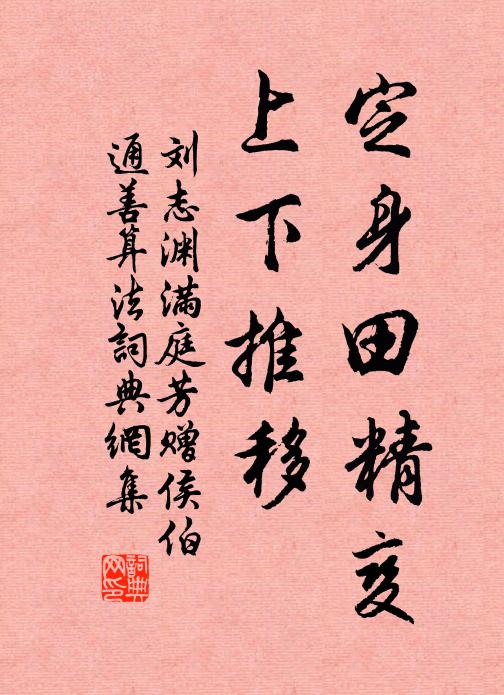 定身田精变
上下推移
刘志渊满庭芳赠侯伯
通善算法詞典網集
詞典网印